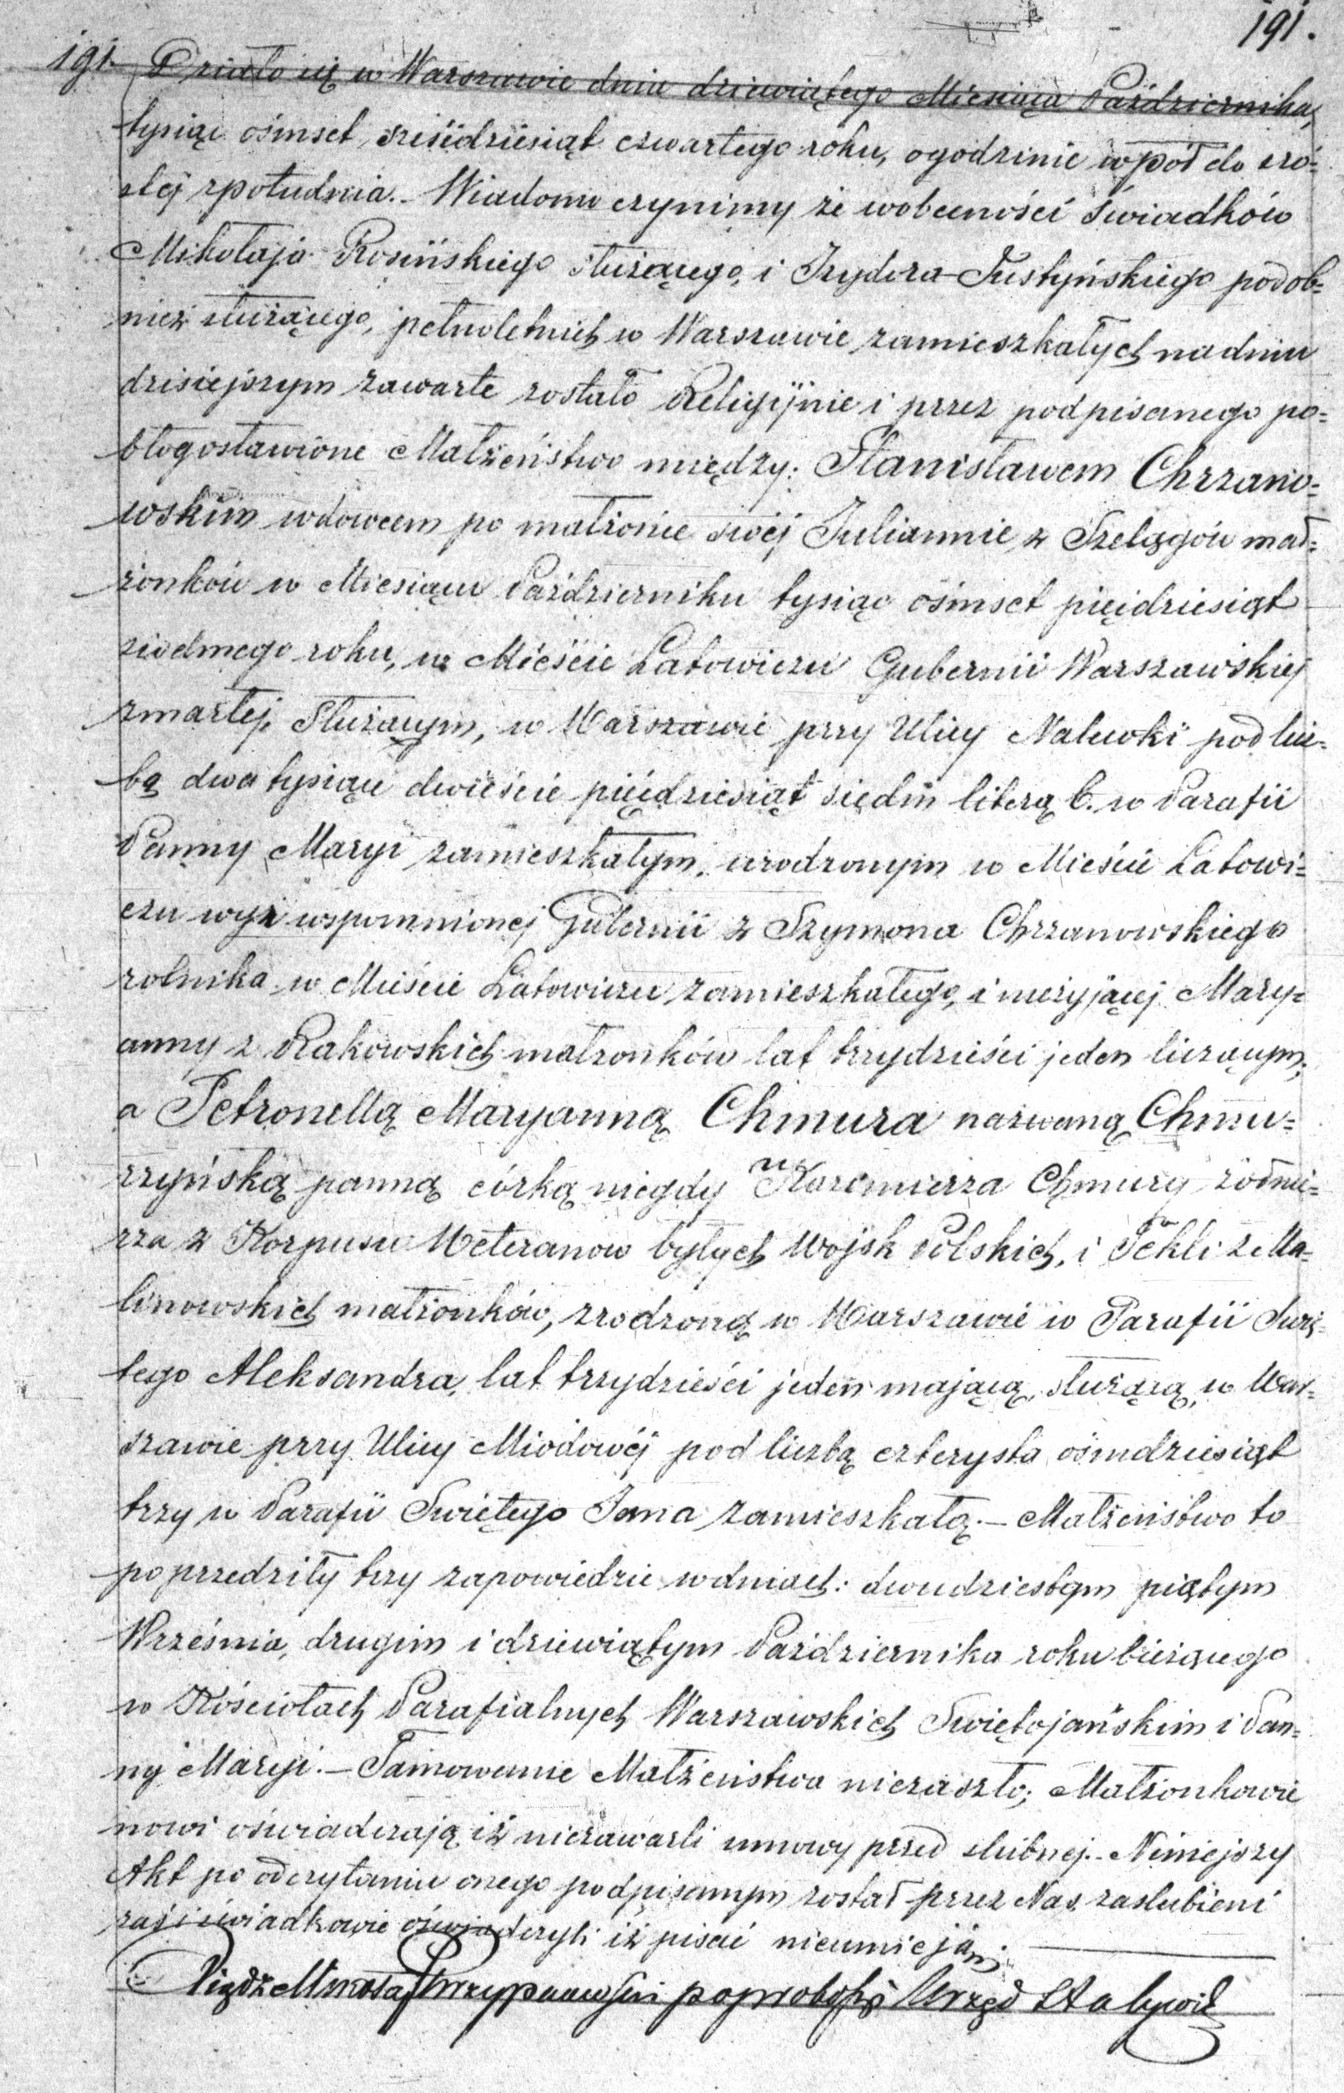 191.
191. Działo się w Warszawie dnia dziewiątego Miesiąca Października,
tysiąc ośmset sześćdziesiąt czwartego roku, o godzinie wpół do szó=
stej z południa. Wiadomo czynimy że w obecności świadków
Mikołaja Rosińskiego służącego, i Izydora Tustyńskiego podob=
nież służącego, pełnoletnich w Warszawie zamieszkałych na dniu
dzisiejszym zawarte zostało Religijnie i przez podpisanego po=
błogosławione Małżeństwo między: Stanisławem Chrzano=
wskim wdowcem po małżonie swéj Juliannie z Szelągów mał=
żonków w Miesiącu Październiku tysiąc ośmset pięćdziesiąt
siódmego roku, w Mieście Latowiczu Gubernii Warszawskiej
zmarłej, Służącym, w Warszawie przy Ulicy Nalewki pod licz=
bą dwa tysiące dwieście pięćdziesiąt siedm literą C. w Parafii
Panny Maryi zamieszkałym, urodzonym w Mieście Latowi=
czu wyż wspomnionej Gubernii z Szymona Chrzanowskiego
rolnika w Mieście Latowiczu zamieszkałego, i nieżyjącej Mary=
anny z Rakowskich małżonków lat trzydzieści jeden liczącym;
a Petronellą Maryanną Chmura nazwaną Chmu=
rzyńską panną córką niegdy Kazimierza Chmury żołnie=
rza z Korpusu Weteranow byłych Wojsk Polskich, i Tekli z Ma=
linowskich małżonków, zrodzoną w Warszawie w Parafii Świę=
tego Aleksandra, lat trzydzieści jeden mającą, służącą, w War=
szawie przy Ulicy Miodowéj pod liczbą czterysta ośmdziesiąt
trzy w Parafii Świętego Jana zamieszkałą. — Małżeństwo to
poprzedziły trzy zapowiedzie w dniach: dwudziestym piątym
Września, drugim i dziewiątym Października roku bieżącego
w Kościołach Parafialnych Warszawskich Świętojańskim i Pan=
ny Maryi. — Tamowanie Małżeństwa niezaszło; Małżonkowie
nowi oświadczają iż niezawarli umowy przed ślubnej. Niniejszy
Akt po odczytaniu onego podpisanym został przez Nas zaślubieni
zaś i świadkowie oświadczyli iż pisać nieumieją.
Urzęd